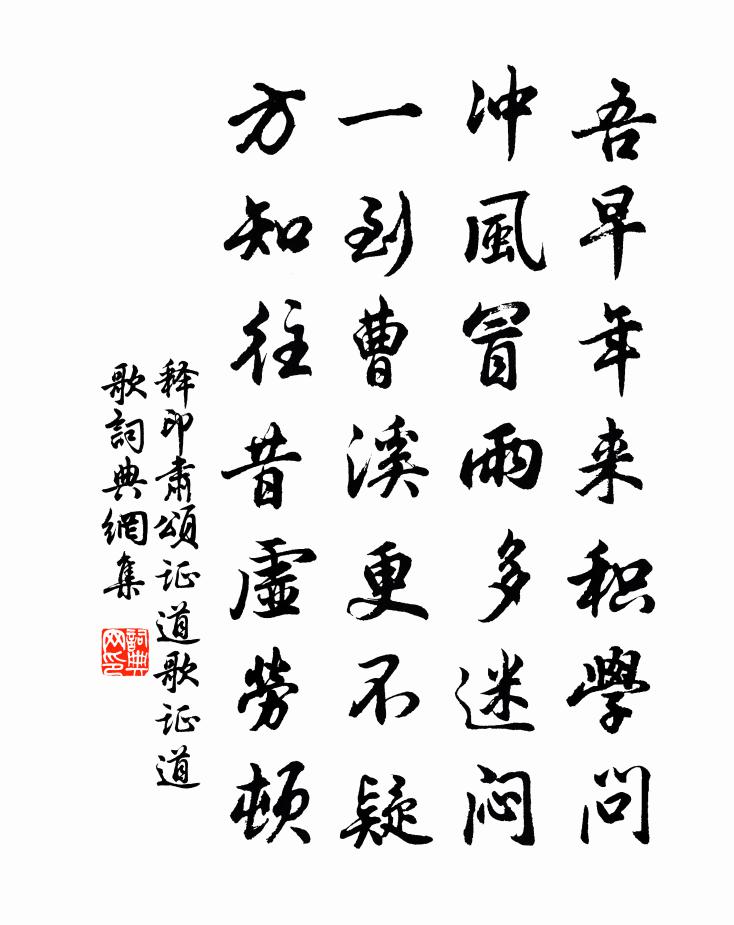 吾早年来积學问
冲風冒雨多迷闷
一到曹溪更不疑
方知往昔虛勞頓
释印肃頌证道歌证道
歌詞典網集
詞典网印